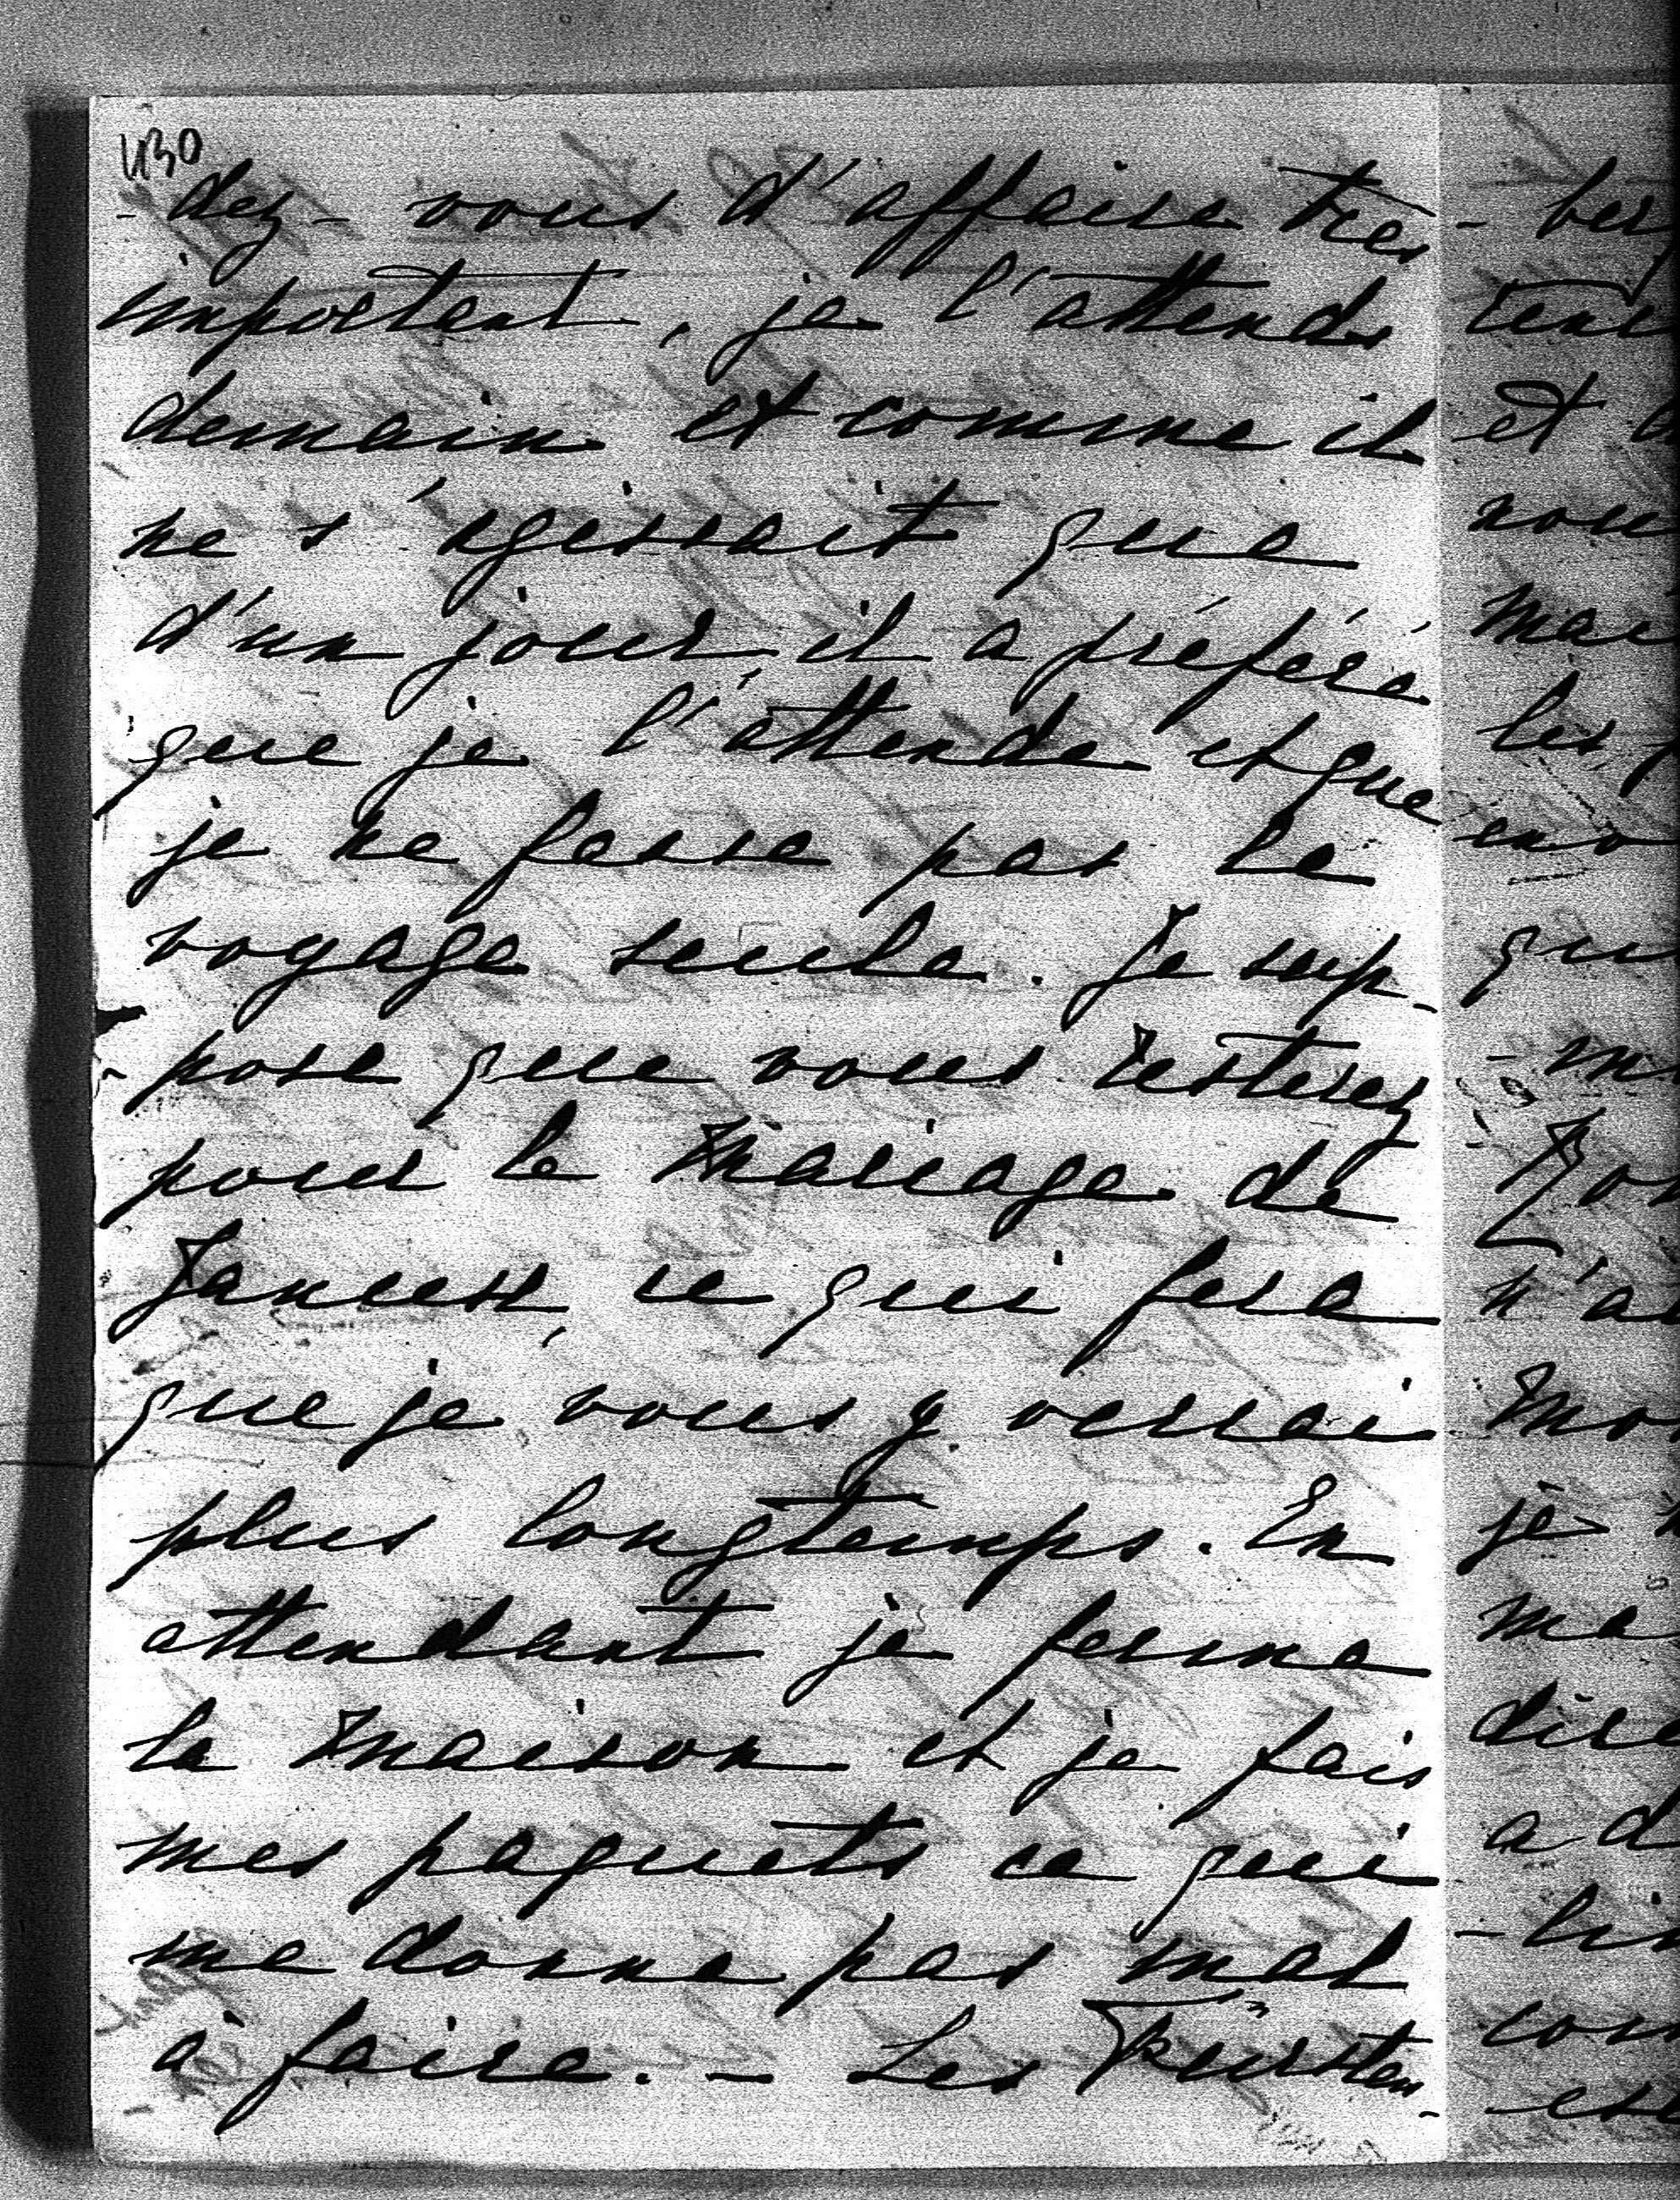 430
- dez - vous d'affaire très
important, je l'attends
demain et comme il
ne s'agissait que
d'un jour, il a préféré
que je l'attende et que
je ne fasse pas le
voyage seule. Je sup-
pose que vous resterez
pour le mariage de
ce qui fera
que je vous y verrai
plus longtemps. En
attendant je ferme
la maison et je fais
mes paquets ce qui
me donne pas mal
à faire. - Les Fürsten-